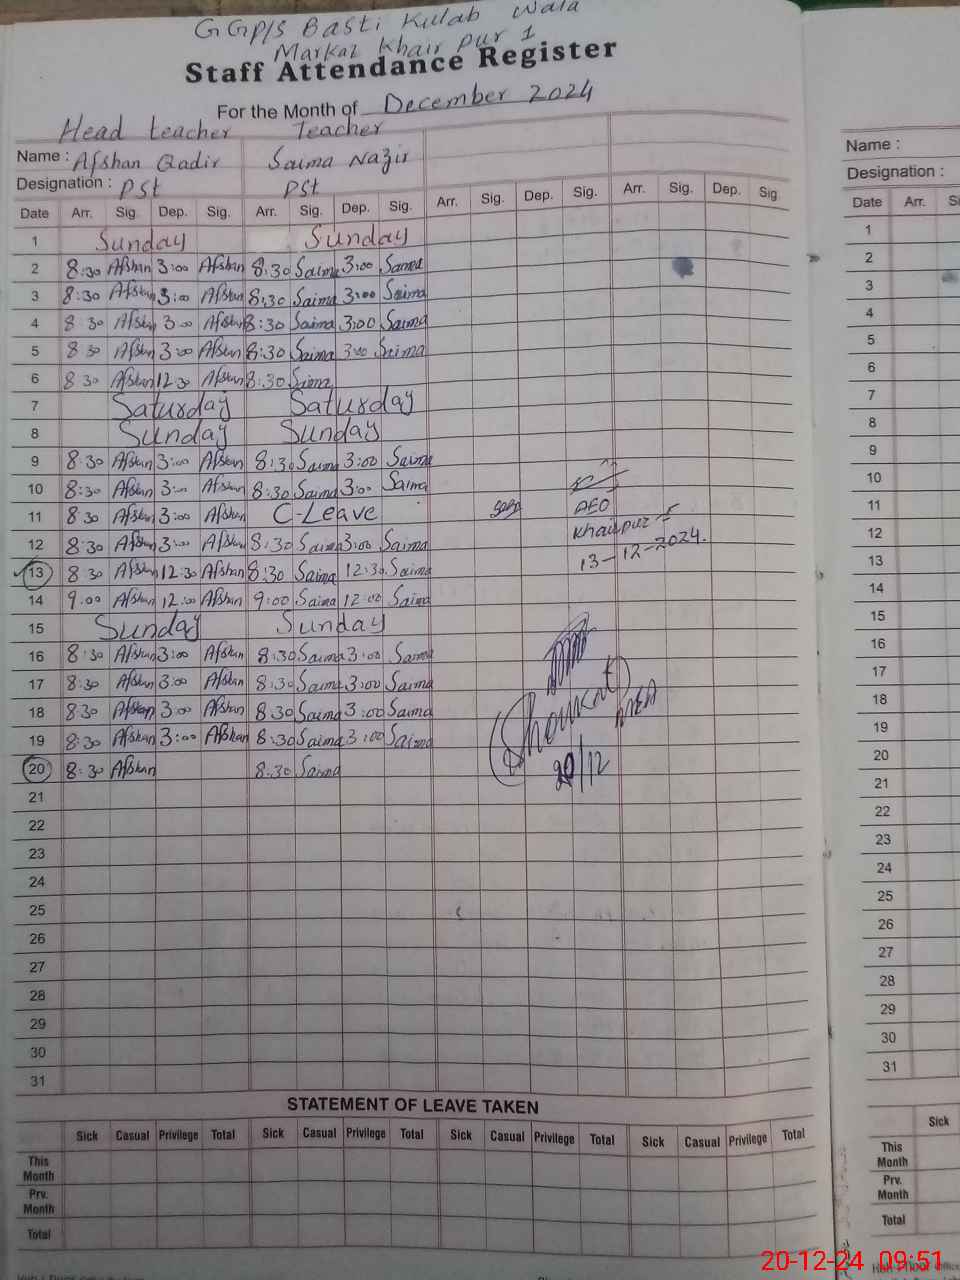 GGP/S Basti Kulab Wala
Markaz Khair Pur 1
Staff Attendance Register
For the Month of December 2024
Head teacher Teacher
Name : Afshan Qadir Saima Nazir
Designation : PST PST
Date Arr. Sig. Dep. Sig. Arr. Sig. Dep. Sig. Arr. Sig. Dep. Sig. Arr. Sig. Dep. Sig.
1 Sunday Sunday
2 8:30 Afshan 3:00 Afshan 8:30 Saima 3:00 Saima
3 8:30 Afshan 3:00 Afshan 8:30 Saima 3:00 Saima
4 8 30 Afshan 3:00 Afshan 8:30 Saima 3:00 Saima
5 8 30 Afshan 3:00 Afshan 8:30 Saima 3:00 Saima
6 8 30 Afshan 12:30 Afshan 8:30 Sima
7 Saturday Saturday
8 Sunday Sunday
9 8:30 Afshan 3:00 Afshan 8:30 Saima 3:00 Saima
10 8:30 Afshan 3:00 Afshan 8:30 Saima 3:00 Saima
11 8 30 Afshan 3:00 Afshan C-Leave AEO
12 8:30 Afshan 3:00 Afshan 8:30 Saima 3:00 Saima Khairpur
13 8 30 Afshan 12:30 Afshan 8:30 Saima 12:30 Saima 13-12-2024.
14 9.00 Afshan 12:00 Afshan 9:00 Saima 12:00 Saima
15 Sunday Sunday
16 8:30 Afshan 3:00 Afshan 8:30 Saima 3:00 Saima
17 8:30 Afshan 3:00 Afshan 8:30 Saima 3:00 Saima
18 8:30 Afshan 3:00 Afshan 8:30 Saima 3:00 Saima Shoukat
19 8:30 Afshan 3:00 Afshan 8:30 Saima 3:00 Saima
20 8:30 Afshan 8:30 Saima 20/12
21
22
23
24
25
26
27
28
29
30
31
STATEMENT OF LEAVE TAKEN
Sick Casual Privilege Total Sick Casual Privilege Total Sick Casual Privilege Total Sick Casual Privilege Total
This Month
Prv. Month
Total
Name :
Designation :
Date Arr.
1
2
3
4
5
6
7
8
9
10
11
12
13
14
15
16
17
18
19
20
21
22
23
24
25
26
27
28
29
30
31
Sick
This Month
Prv. Month
Total
20-12-24 09:51